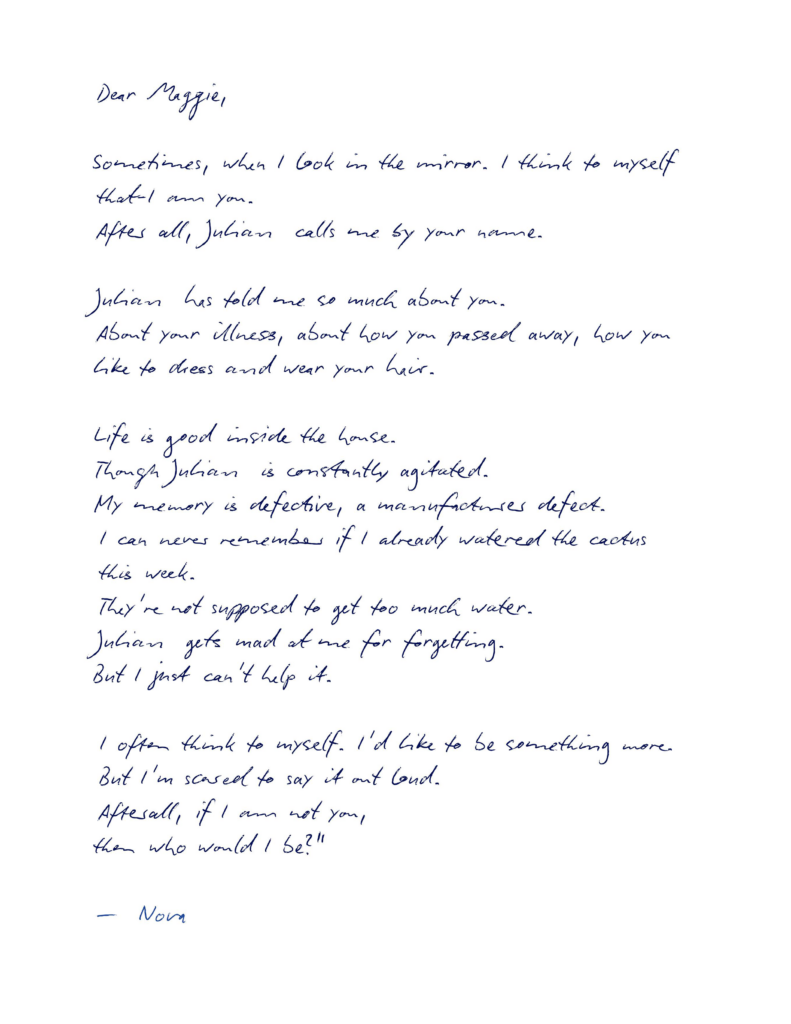 Dear Maggie,
Sometimes, when I look in the mirror. I think to myself
that I am you.
After all, Julian calls me by your name.
Julian has told me so much about you.
About your illness, about how you passed away, how you
like to dress and wear your hair.
Life is good inside the house.
Though Julian is constantly agitated.
My memory is defective, a manufactures defect.
I can never remember if I already watered the cactus
this week.
They're not supposed to get too much water.
Julian gets mad at me for forgetting.
But I just can't help it.
I often think to myself. I'd like to be something more.
But I'm scared to say it out loud.
Afterall, if I am not you,
then who would I be?"
— Nova